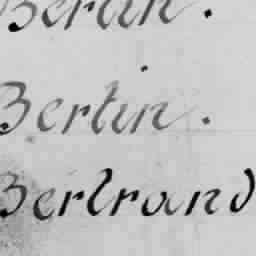 Bertin.
Bertin.
Bertrand